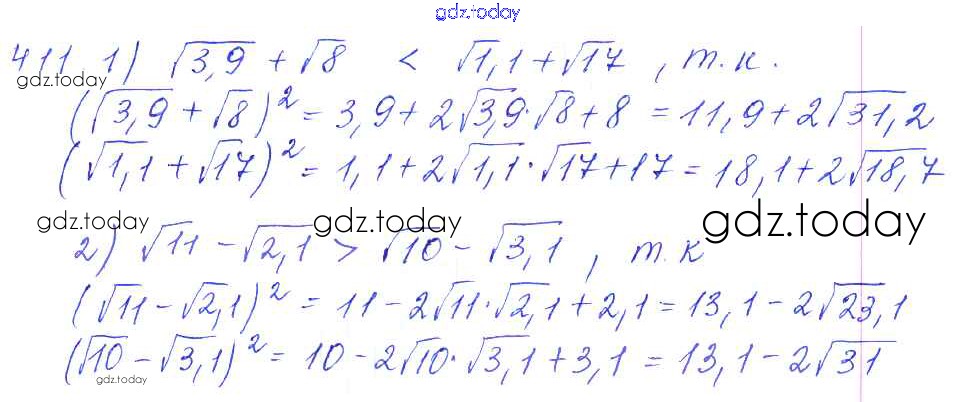 gdz.today
411. 1) √3,9 + √8 < √1,1 + √17, т.к.
gdz.today
(√3,9 + √8)² = 3,9 + 2√3,9·√8 + 8 = 11,9 + 2√31,2
(√1,1 + √17)² = 1,1 + 2√1,1·√17 + 17 = 18,1 + 2√18,7
gdz.today gdz.today gdz.today
2) √11 - √2,1 > √10 - √3,1, т.к
(√11 - √2,1)² = 11 - 2√11·√2,1 + 2,1 = 13,1 - 2√23,1
(√10 - √3,1)² = 10 - 2√10·√3,1 + 3,1 = 13,1 - 2√31
gdz.today